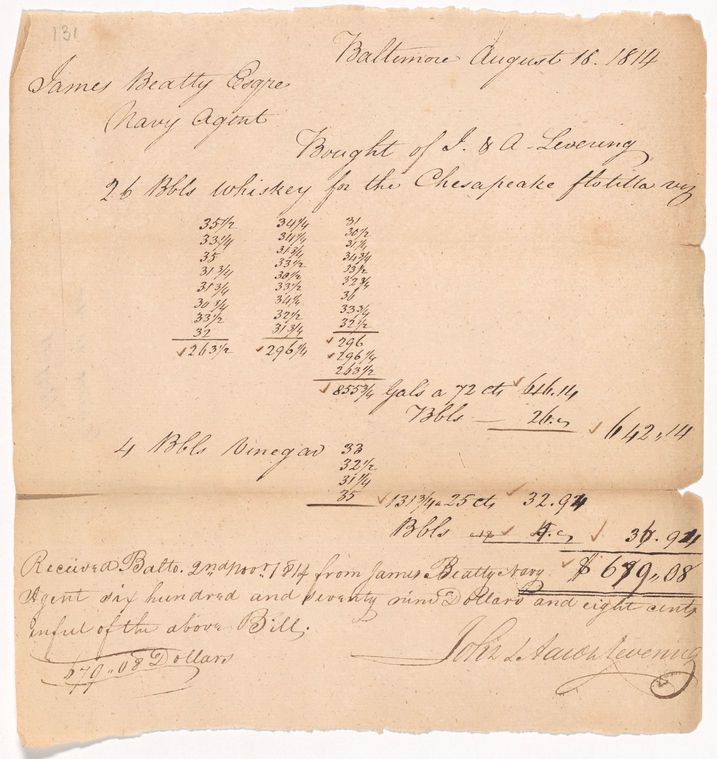 131
Baltimore August 18. 1814
James Beatty Esqre
Navy Agent
Bought of J. & A. Levering
26 Bbls whiskey for the Chesapeake flotilla viz
35 1/2 34 1/4 31
33 1/4 34 1/4 30 1/2
35 31 3/4 31 1/4
31 3/4 33 1/2 34 3/4
31 3/4 30 1/2 33 1/2
30 3/4 33 1/2 32 3/4
33 1/2 34 1/4 36
32 32 1/2 33 3/4
31 3/4 32 1/2
263 1/2 296 1/4 296
296 1/4
263 1/2
855 3/4 Gals a 72 cts 616.14
Bbls 26.„ 642„14
4 Bbls Vinegar 33
32 1/2
31 1/4
35
131 3/4 a 25 cts 32.94
Bbls 4.„ 36.94
$679„08
Received Balto. 2nd Novr. 1814 from James Beatty Navy
Agent six hundred and seventy nine Dollars and eight cents
infull of the above Bill.
679„08 Dollars
John & Aaron Levering